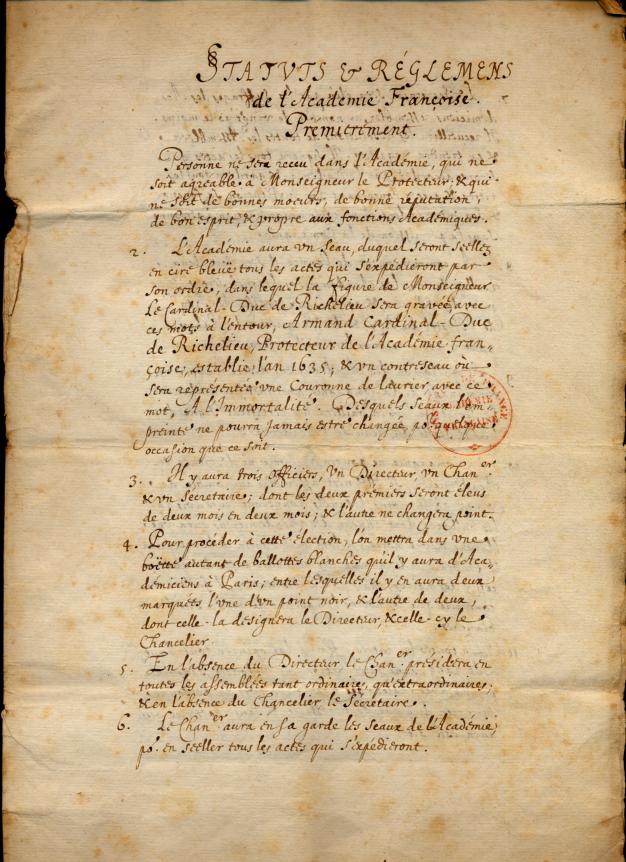 STATVTS & RÉGLEMENS
de l'Academie Françoise.
Premierement.
Personne ne sera receu dans l'Académie, qui ne
soit agreable à Monseigneur le Protecteur, & qui
ne soit de bonnes moeurs, de bonne reputation,
de bon esprit, & propre aux fonctions Académiques.
2. L'Académie aura vn seau, duquel seront seellez
en cire bleuë tous les actes qui s'expedieront par
son ordre, dans lequel la figure de Monseigneur
Le Cardinal-Duc de Richelieu sera gravée, avec
ces mots à l'entour, Armand Cardinal-Duc
de Richelieu, Protecteur de l'Académie fran-
çoise, establie l'an 1635; & vn contreseau où
sera représentée vne Couronne de laurier, avec ce
mot, A l'Immortalité. Desquels seaux l'em-
preinte ne pourra jamais estre changée, po.r quelque
occasion que ce soit.
3. Il y aura trois officiers, Vn Directeur, vn Chan.er
& vn Secretaire; dont les deux premiers seront éleus
de deux mois en deux mois; & l'autre ne changera point.
4. Pour procéder à cette élection, l'on mettra dans vne
boëtte autant de ballottes blanches qu'il y aura d'Aca-
démiciens à Paris; entre lesquelles il y en aura deux
marquées, l'vne d'vn point noir, & l'autre de deux,
dont celle-la designera le Directeur, & celle-cy le
Chancelier.
5. En l'absence du Directeur le Chan.er présidera en
toutes les assemblées tant ordinaires, qu'extraordinaires;
& en l'absence du Chancelier, le Secretaire.
6. Le Chan.er aura en sa garde les seaux de l'Académie,
po.r en seeller tous les actes qui s'expedieront.